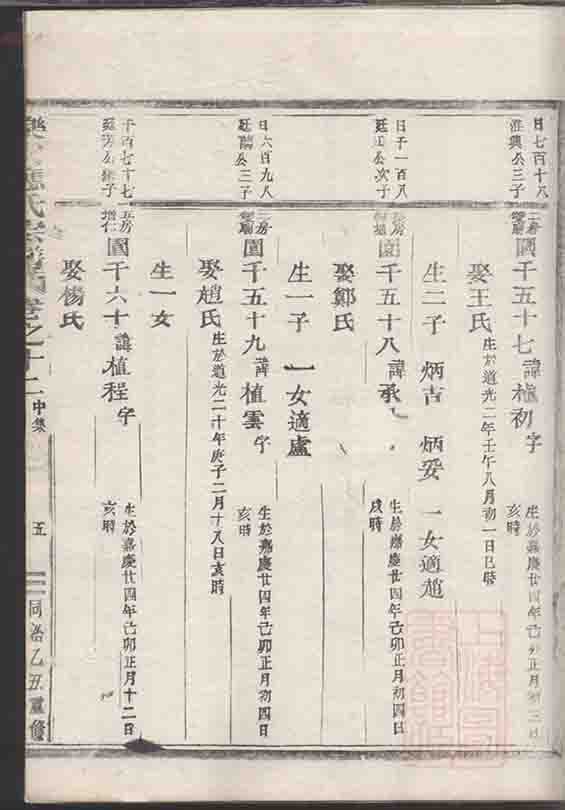 日七百十八
進興公三子
二房
國千五十七 諱植初 字
生於嘉慶廿四年己卯正月初三日
亥時
娶王氏 生於道光二年壬午八月初一日巳時
生二子 炳吉 炳安 一女適趙
日千一百八
廷 公次子
房
國千五十八 諱承 
生於嘉慶廿四年己卯正月初四日
戌時
娶鄭氏
生一子 一女適盧
日六百九八
廷 公三子
二房
國千五十九 諱植雲 字
生於嘉慶廿四年己卯正月初四日
亥時
娶趙氏 生於道光二十年庚子二月十八日亥時
生一女
千百七十七
廷 公 子
房
增仁
國千六十 諱植程 字
生於嘉慶廿四年己卯正月十二日
亥時
娶楊氏
樂 氏宗譜 卷之十二 中集 五 同治乙丑重修